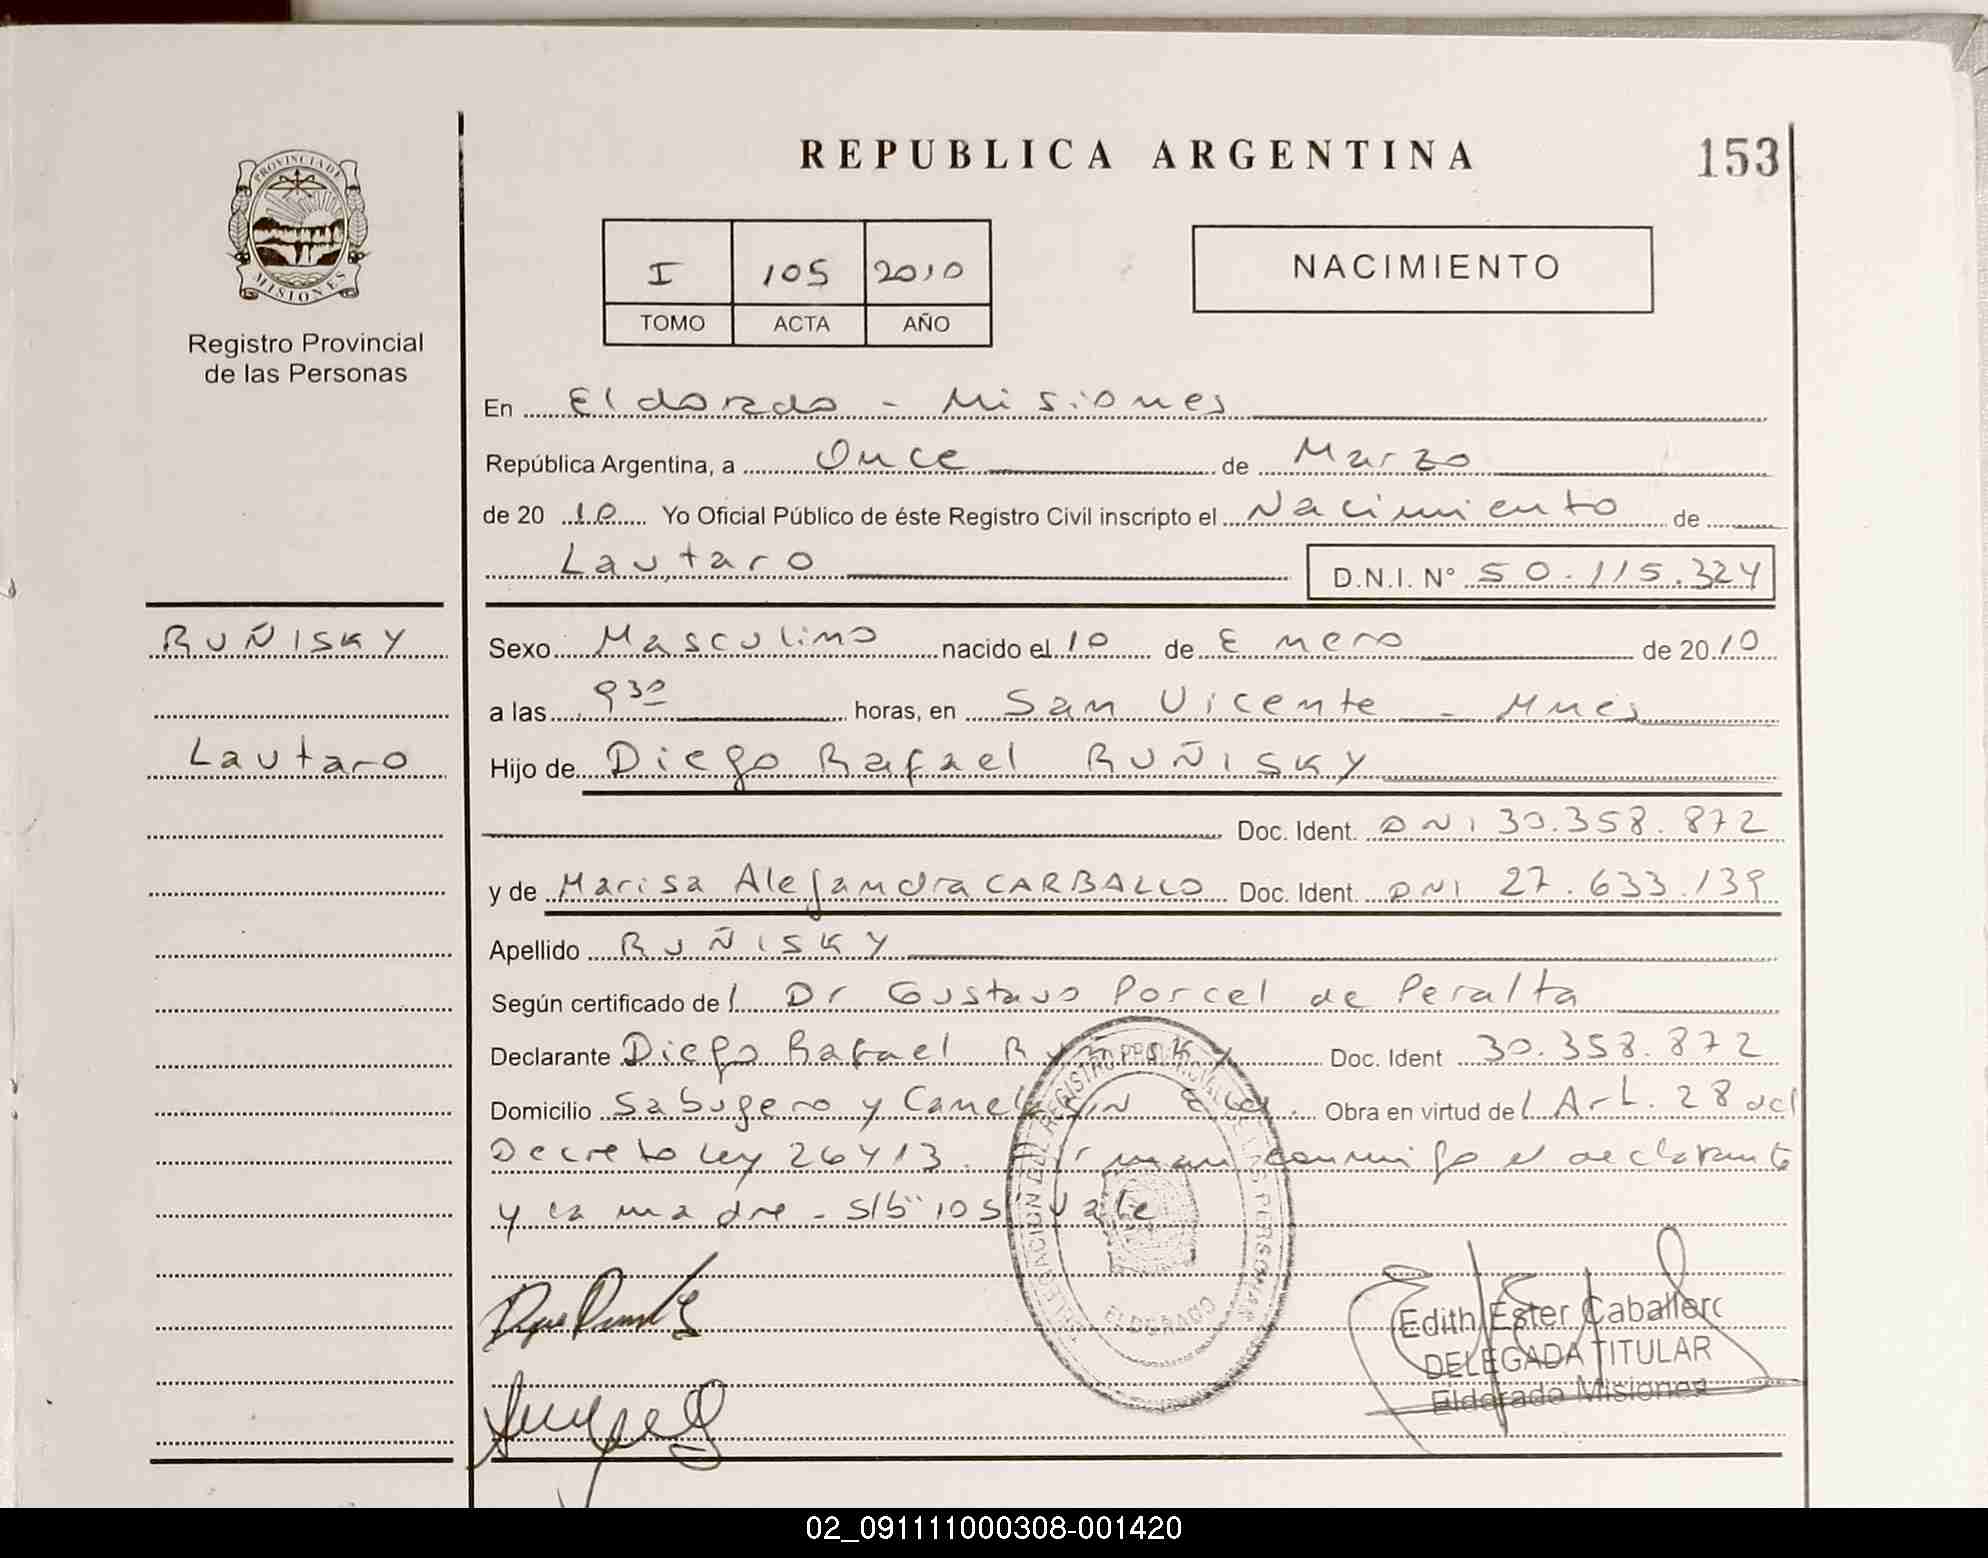 PROVINCIA DE
MISIONES
Registro Provincial
de las Personas
REPUBLICA ARGENTINA
153
I 105 2010
TOMO ACTA AÑO
NACIMIENTO
En Eldorado - Misiones
República Argentina, a Once de Marzo
de 20 10 Yo Oficial Público de éste Registro Civil inscripto el Nacimiento de
Lautaro D.N.I. N° 50.115.324
RUÑISKY
Lautaro
Sexo Masculino nacido el 10 de Enero de 2010
a las 9 30 horas, en San Vicente - Mnes
Hijo de Diego Rafael RUÑISKY
Doc. Ident. DNI 30.358.872
y de Marisa Alejandra CARBALLO Doc. Ident. DNI 27.633.139
Apellido RUÑISKY
Según certificado del Dr Gustavo Porcel de Peralta
Declarante Diego Rafael Ruñisky Doc. Ident 30.358.872
Domicilio y S/N Obra en virtud del Art. 28 del
Decreto Ley 26413. Firman conmigo el declarante
y la madre - S/b "105" Vale
DELEGACION DEL REGISTRO PROVINCIAL DE LAS PERSONAS
ELDORADO
Edith Ester Caballero
DELEGADA TITULAR
Eldorado Misiones
02_091111000308-001420